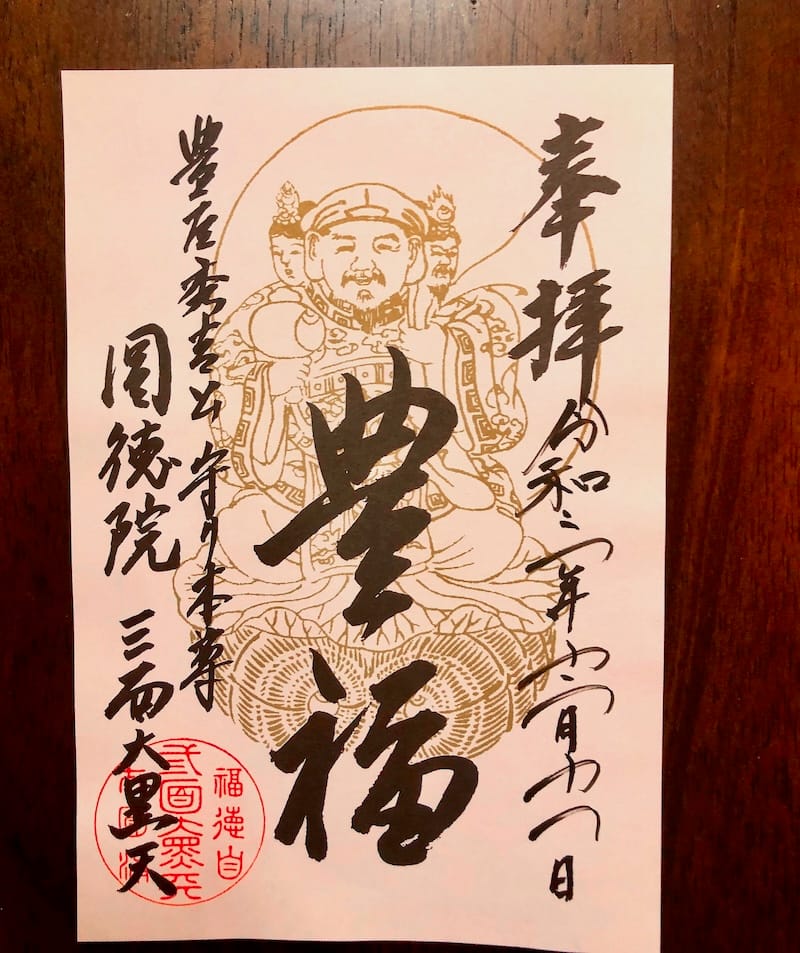 奉拝 令和二年十二月十日
豊福
豊臣秀吉公 守り本尊
圓徳院 三面大黒天
福徳自
三面大黒天
在圓満